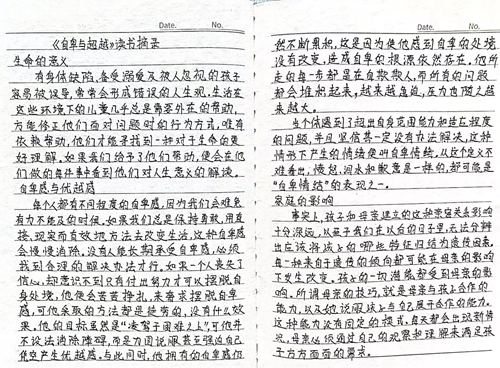 Date. No.
《自卑与超越》读书摘录
生命的意义
有身体缺陷,备受溺爱及被人忽视的孩子
容易被误导,常常会形成错误的人生观,生活在
这些环境下的儿童几乎总是需要外在的帮助,
方能修正他们面对问题时的行为方式,唯有
依赖帮助,他们才能寻找到一种对于生命的更
好理解。如果我们给予了他们帮助,便会在他
们做的每件事看到他们对人生意义的解读。
自卑感与优越感
每个人都有不同程度的自卑感,因为我们会难免
有力不能及的时候。如果我们总是保持勇敢,用直
接、现实而有效地方法去改变生活,这种自卑感
会慢慢消除。没有人能长期承受自卑感,必须
找到合理的解决办法才行。如果一个人丧失了
信心,却意识不到只有付出努力才可以摆脱自
身处境,他便会苦苦挣扎,来尝试摆脱自卑
感,可他采取的方法都是徒劳的,没有什么效
果。他的目标虽然是“凌驾于困难之上”,可他并
不设法消除障碍,而是力图说服甚至强迫自己
凭空产生优越感。与此同时,他拥有的自卑感仍
Date. No.
然不断累积,这是因为使他感到自卑的处境
没有改变,造成自卑的根源依然存在。他所
走的每一步都是在自欺欺人,而所有的问题
都会堆积起来,越来越急迫,压力也随之越
来越大。
当个体遇到了超出自身范围能力和适应程度
的问题,并且坚信其一定没有办法解决,这种
情形下产生的情绪便叫自卑情结,从这个定义不
难看出,愤怒、泪水和歉意是一样的,都可能是
“自卑情结”的表现之一。
家庭的影响
事实上,孩子和母亲建立的这种亲密关系影响
十分深远,以至于我们在以后的日子里,无法分辨
出应该将孩子的哪些特征归结为遗传因素。
每一种来自于遗传的倾向都可能在母亲的影响
下发生改变。孩子的一切潜能都受到母亲的影
响。所谓母亲的技巧,就是母亲与孩子合作的
能力,以及她说服孩子与自己展开合作的能力。
这种能力没有固定的模式,每天都会出现新情
况,母亲必须通过自己的观察和理解来满足孩
子方方面面的需求。